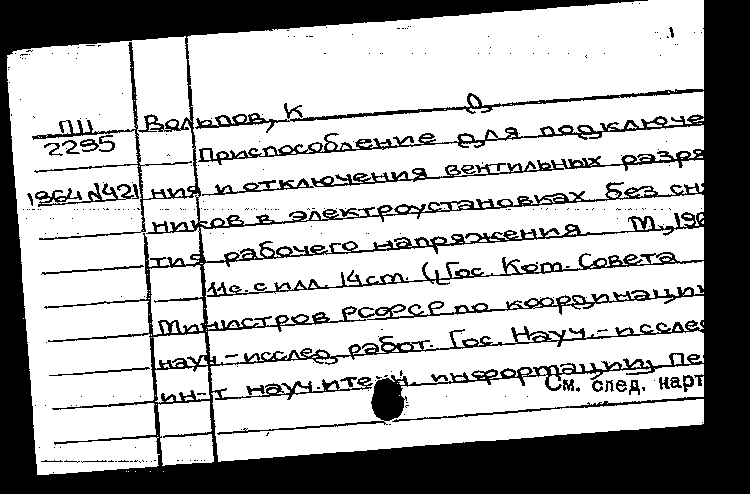 П11 Вольпов, К
2295 Приспособление для подключе
1964 N421 ния и отключения вентильных разря
ников в электроустановках без сня
тия рабочего напряжения. М., 196
11с. с илл. 14 ст. (Гос. Ком. Совета
Министров РСФСР по координации
науч.-исслед. работ. Гос. Науч.-исслед
ин-т науч. и техн. информации, Пе
См. след. карт